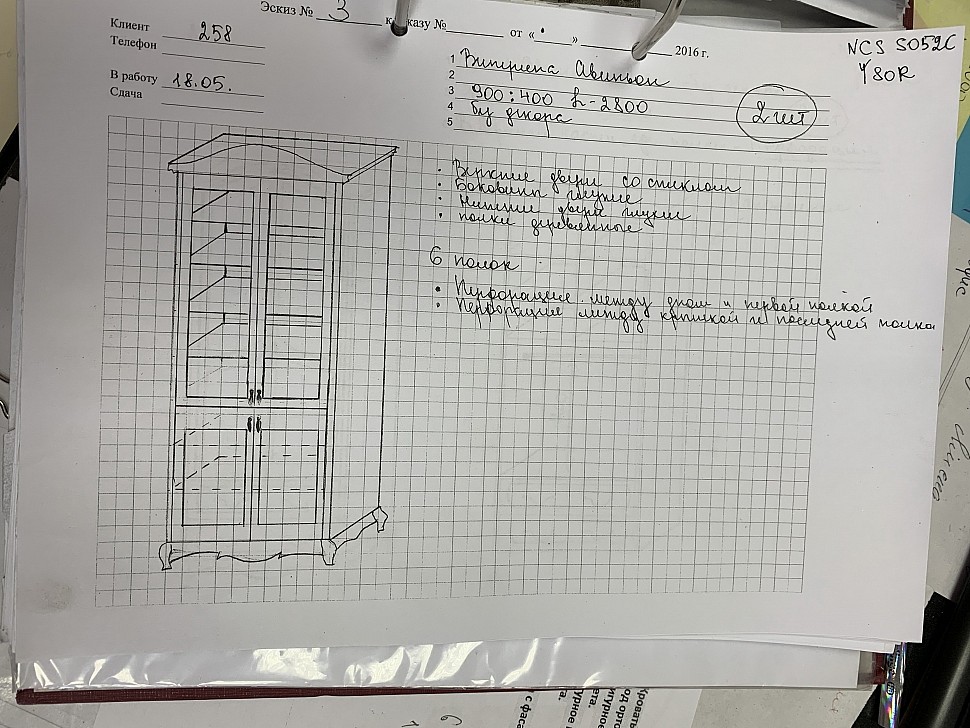 Эскиз № 3 к заказу № от « » 2016 г.
Клиент 258
Телефон
В работу 18.05.
Сдача
NCS S052C
Y80R
1 Витрина Авиньон
2
3 900:400 h-2800
4 бу декора
5
2 шт
· Верхние двери со стеклом
· Боковины глухие
· Нижние двери глухие
· полки деревянные
6 полок
· Перфорация между дном и первой полкой
· Перфорация между крышкой и последней полкой